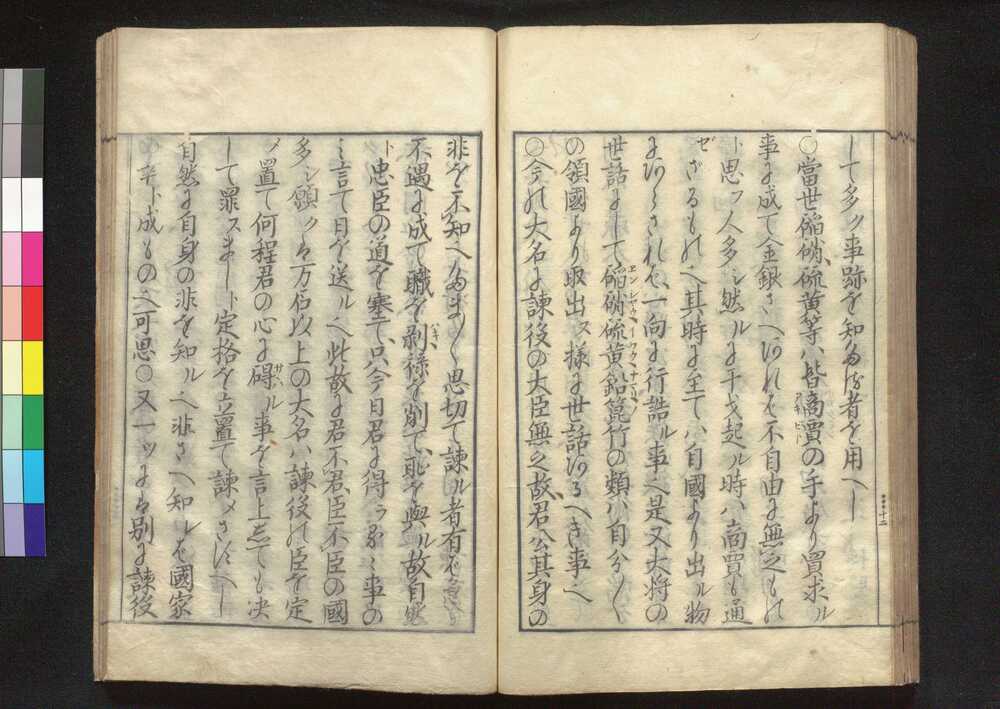 して多ク事跡を知たる者を用へし
〇當世焔硝、硫黄等ハ皆商賈の手より買求ル
事に成て金銀さへあれは不自由に無之もの
ト思フ人多シ然ルに干戈起ル時ハ商賈も通
ぜざるものへ其時に至てハ自國より出ル物
にあらされは、一向に行詰ル事へ是又大将の
世話にして焔硝硫黄鉛箆竹の類ハ自分〱
の領國より取出ス様に世話あるへき事へ
〇今の大名に諫後の大臣無之故、君公其身の
非を不知へたま〱思切て諫ル者有
不遇に成て職を剥禄を削て、恥を與ル故自然
ト忠臣の道を塞て、只今日君に得ラルヽ事の
ミ言て日を送ルへ此故に君不君、臣不臣の國
多シ願クは万石以上の大名ハ諫後の臣を定
メ置て何程君の心に碍ル事を言上しても决
して罪スましト定格を立置て諫メさすへし
自然に自身の非を知ルへ非さへ知ルは國家
の平ト成もの之可思〇又一ッには別に諫後
十二